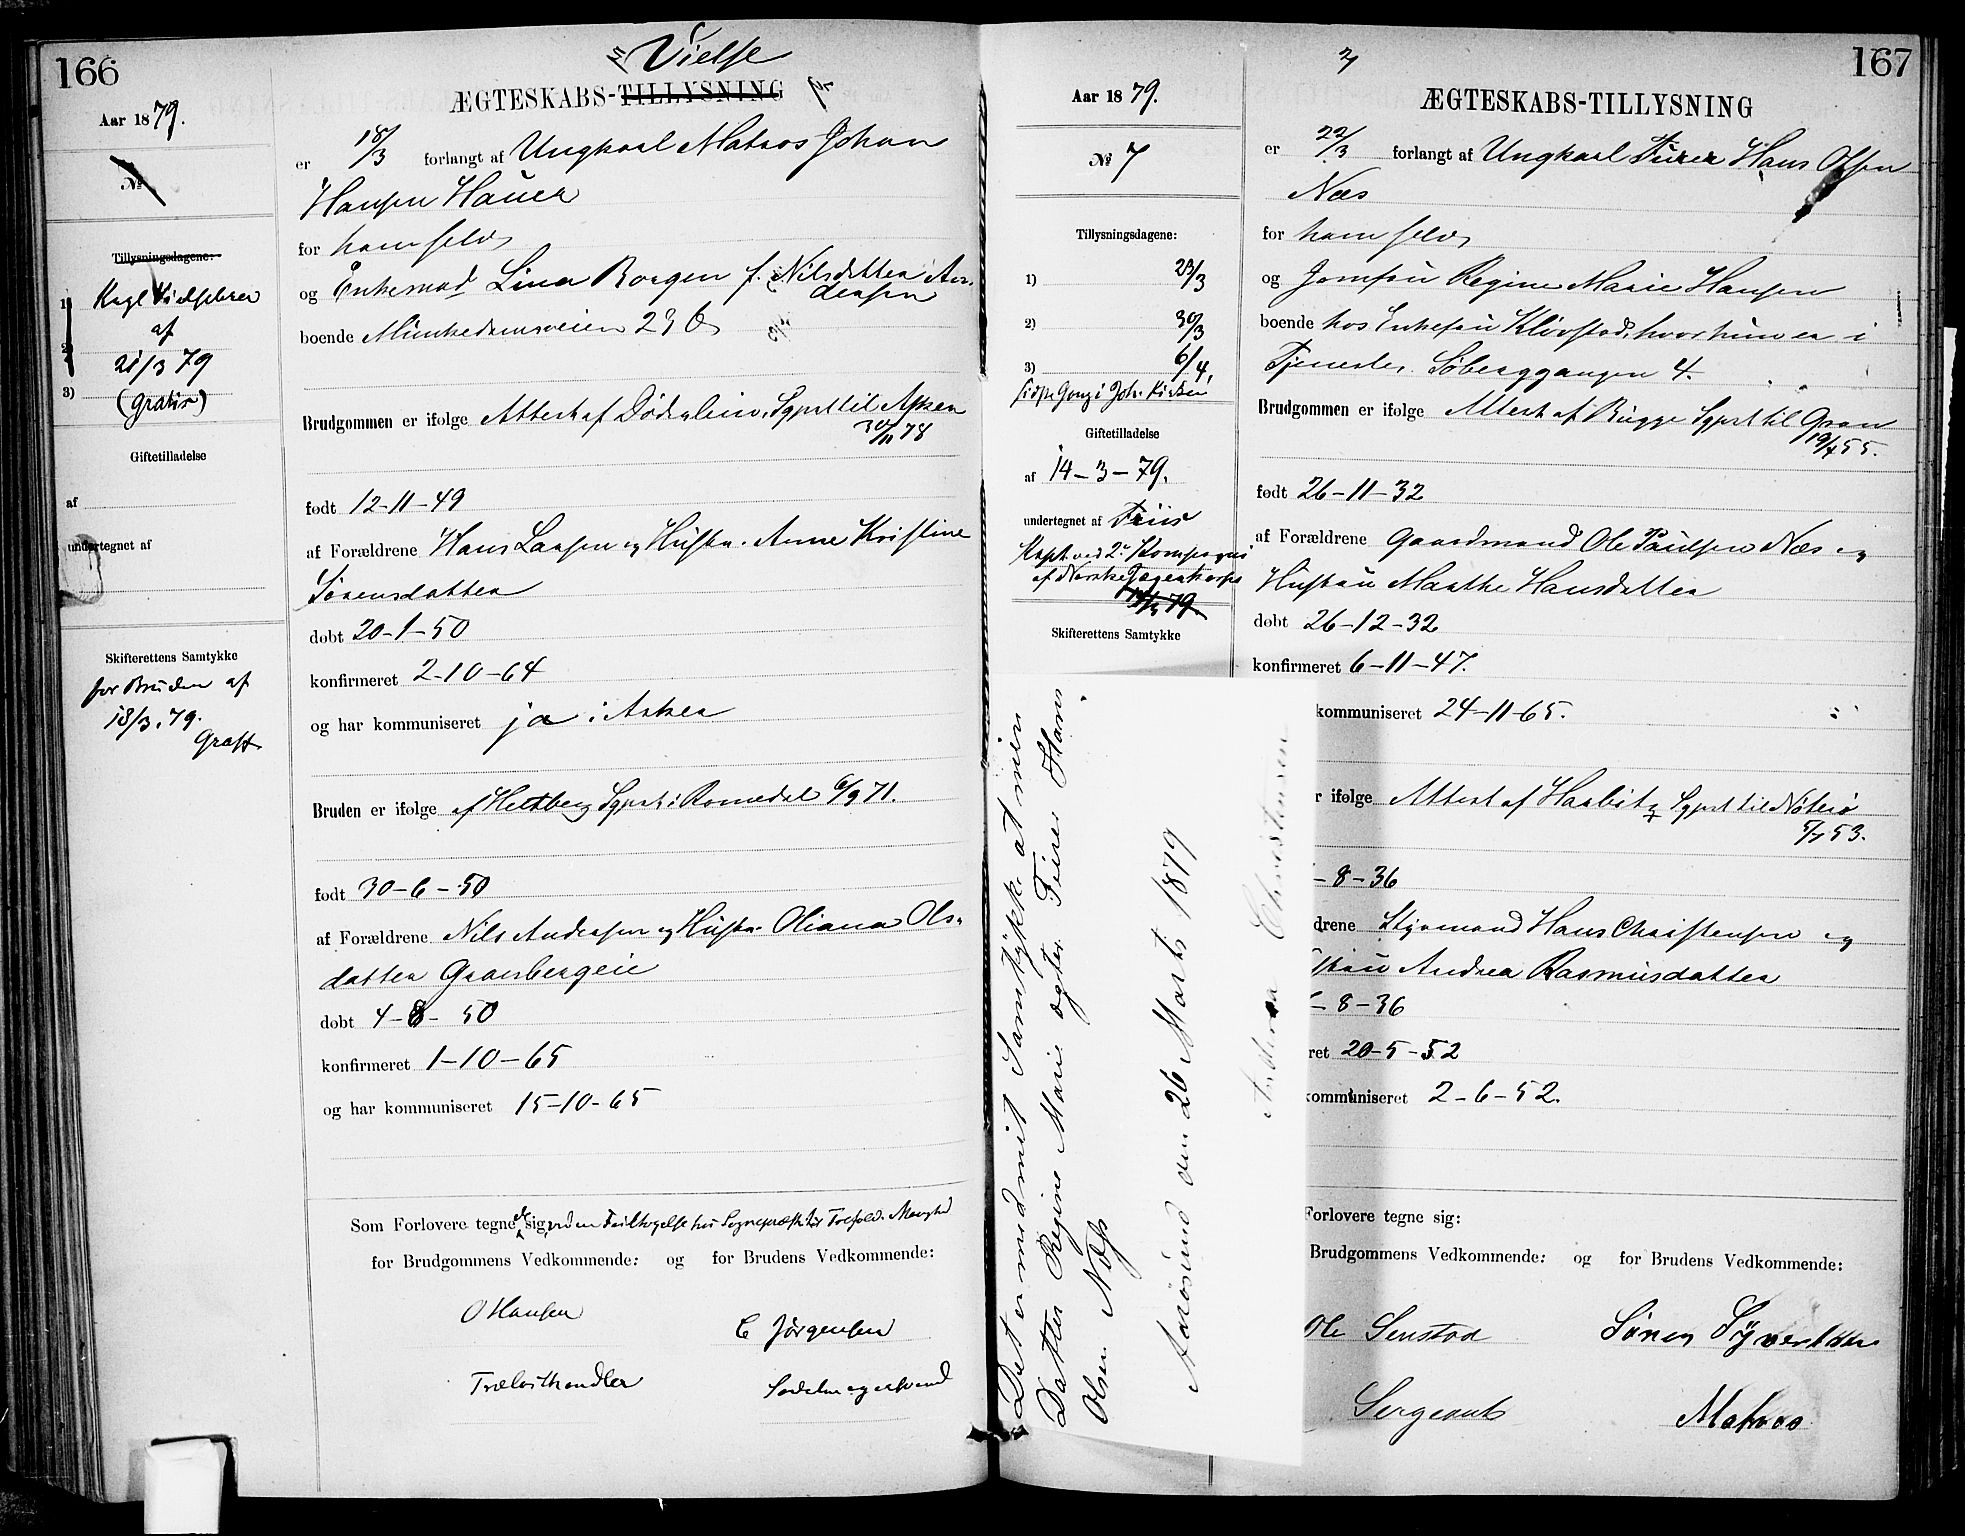 166
Vielse
ÆGTESKABS-TILLYSNING
Aar 1879.
№
Tillysningsdagene:
1)
Kgl Vielsebrev
af
2)
21/3 79
3)
(gratis)
Giftetilladelse
af
undertegnet af
Skifterettens Samtykke
for Bruden af
18/3. 79.
er 18/3 forlangt af Ungkarl Matros Johan
Hansen Hauer
for ham selv
og Enkemad. Lina Borgen f. Nilsdatter An-
dersen
boende Munkedamsveien 23 b
Brudgommen er ifølge Attest af Døderlein, Sgprst til Asker
30/11 78
født 12-11-49
af Forældrene Hans Larsen og Hustr. Anne Kristine
Sørensdatter
døbt 20-1-50
konfirmeret 2-10-64
og har kommuniseret ja i Asker
Bruden er ifølge af Heltberg Sgprst i Romedal 6/9 71.
født 30-6-50
af Forældrene Nils Andersen og Hustr. Oliana Ols-
datter Granbergeie
døbt 4-8-50
konfirmeret 1-10-65
og har kommuniseret 15-10-65
Som Forlovere tegnede sig, ved en
for Brudgommens Vedkommende: og for Brudens Vedkommende:
O Hansen
C Jørgensen
Trælasthandler
Sadelmagersvend
167
ÆGTESKABS-TILLYSNING
Aar 1879.
№ 7
Tillysningsdagene:
1) 23/3
2) 30/3
3) 6/4,
sidste Gang i Joh. Kirken
Giftetilladelse
af 14-3-79.
undertegnet af Friis
Kapt. ved 2. Kompagni
af Norske Jægerkorps
Skifterettens Samtykke
er 22/3 forlangt af Ungkarl Furer Hans Olsen
Næs
for ham selv
og Jomfru Regine Marie Hansen
boende hos Enkefru Klovstad, hvor hun er i
Tjeneste. Søberggangen 4.
Brudgommen er ifølge Attest af Bugge Sgprst til Gran
19/4 55.
født 26-11-32
af Forældrene Gaardmand Ole Paulsen Næs og
Hustru Marthe Hansdatter
døbt 26-12-32
konfirmeret 6-11-47.
kommuniseret 24-11-65.
r ifølge Attest af Haslev Sgprst til Nøterø
5/7 53.
-8-36
drene Styrmand Hans Christensen og
stru Andrea Rasmusdatter
-8-36
ret 20-5-52
kommuniseret 2-6-52.
Forlovere tegne sig:
Brudgommens Vedkommende: og for Brudens Vedkommende:
Ole Senstad
Sergeant
Matros
Det er med mit Samtykke at min
Datter Regine Marie ægter Furer Hans
Olsen Næss
Aarøsund den 26 Marts 1879
Andrea Christensen